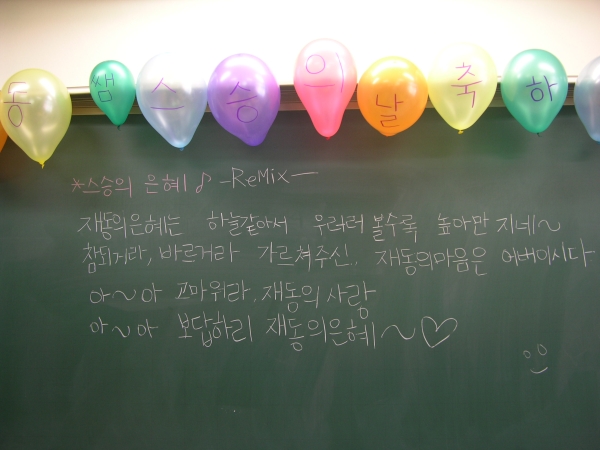 동 쌤 스승의 날 축하
*스승의 은혜 ♪ -ReMix-
재동의은혜는 하늘같아서 우러러 볼수록 높아만 지네~
참되거라, 바르거라 가르쳐주신. 재동의마음은 어버이시다
아~아 고마워라, 재동의 사랑
아~아 보답하리 재동의은혜~♡